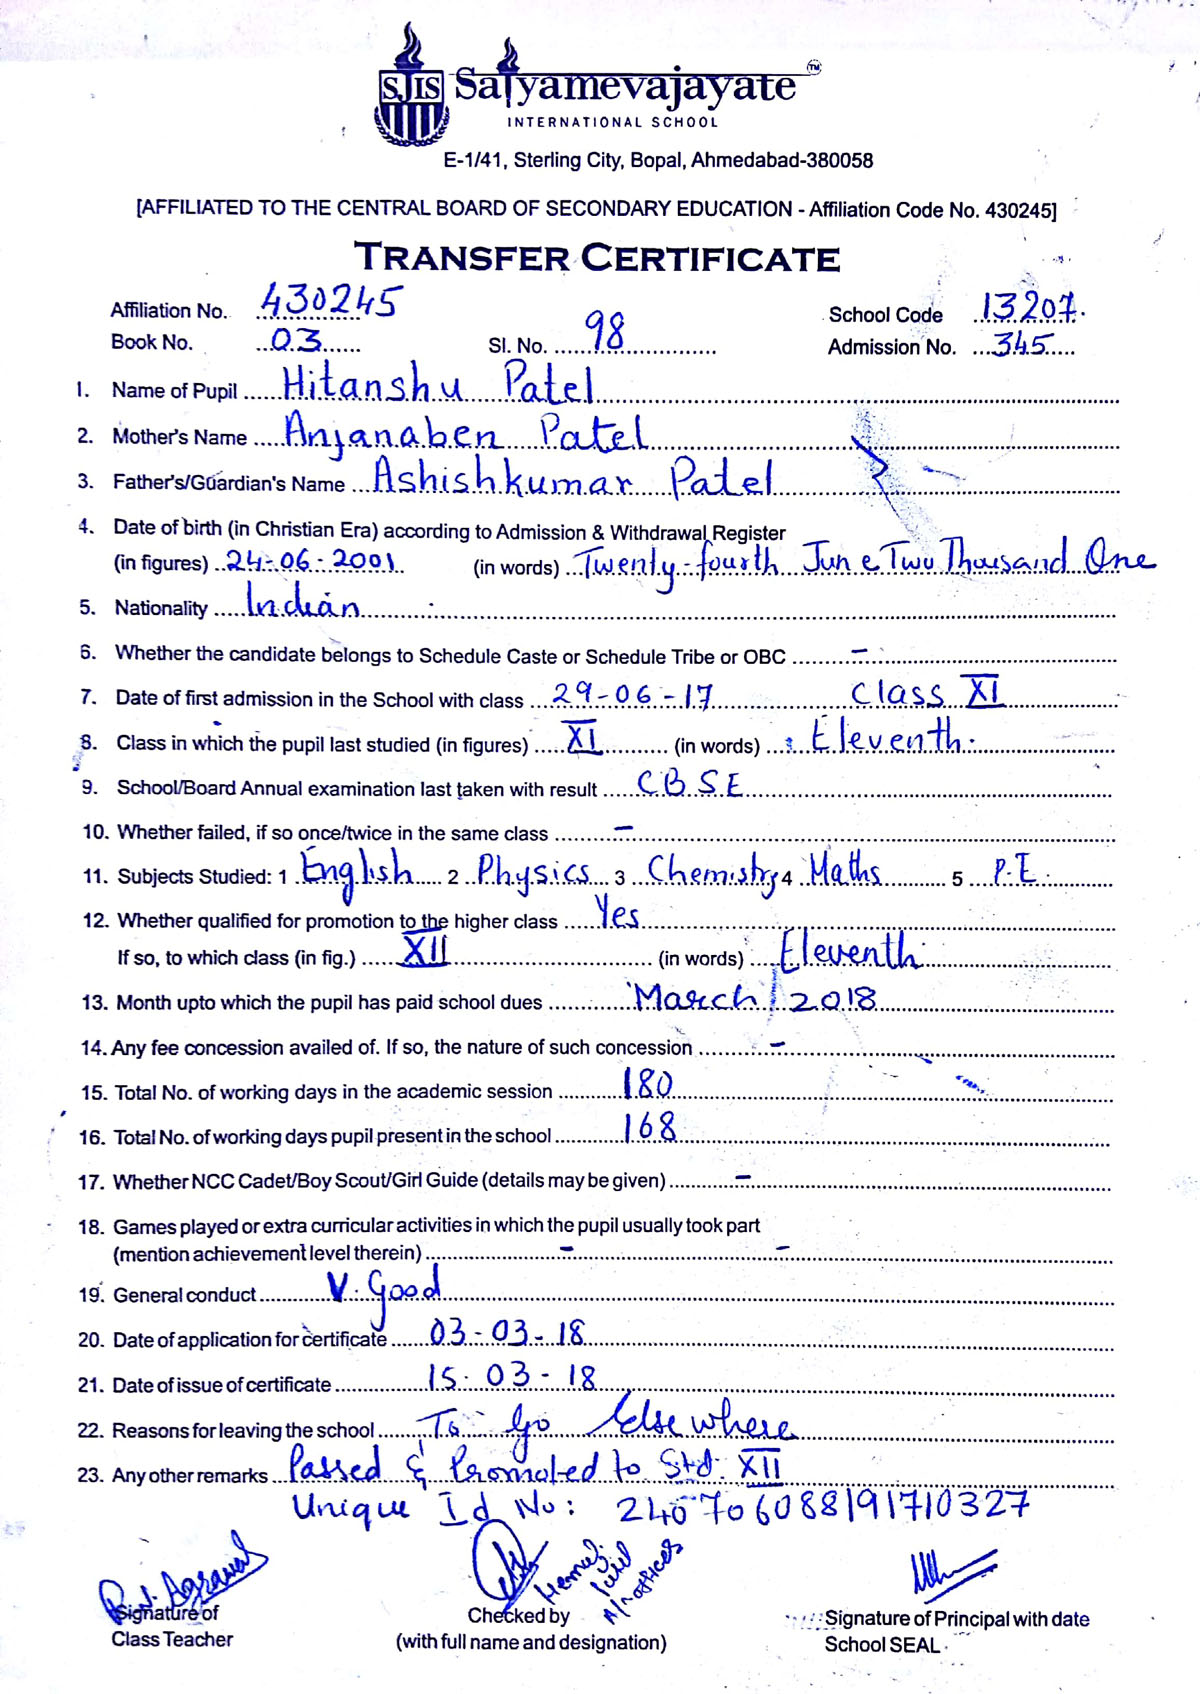 SJIS Satyamevajayate TM
INTERNATIONAL SCHOOL
E-1/41, Sterling City, Bopal, Ahmedabad-380058
[AFFILIATED TO THE CENTRAL BOARD OF SECONDARY EDUCATION - Affiliation Code No. 430245]
TRANSFER CERTIFICATE
Affiliation No. 430245 School Code 13207.
Book No. 03 Sl. No. 98 Admission No. 345
1. Name of Pupil Hitanshu Patel
2. Mother's Name Anjanaben Patel
3. Father's/Guardian's Name Ashishkumar Patel
4. Date of birth (in Christian Era) according to Admission & Withdrawal Register
(in figures) 24-06-2001 (in words) Twenty-fourth June Two Thousand One
5. Nationality Indian
6. Whether the candidate belongs to Schedule Caste or Schedule Tribe or OBC -
7. Date of first admission in the School with class 29-06-17 Class XI
8. Class in which the pupil last studied (in figures) XI (in words) Eleventh.
9. School/Board Annual examination last taken with result CBSE
10. Whether failed, if so once/twice in the same class -
11. Subjects Studied: 1 English 2 Physics 3 Chemistry 4 Maths 5 P.E.
12. Whether qualified for promotion to the higher class Yes
If so, to which class (in fig.) XII (in words) Eleventh
13. Month upto which the pupil has paid school dues March/2018
14. Any fee concession availed of. If so, the nature of such concession -
15. Total No. of working days in the academic session 180
16. Total No. of working days pupil present in the school 168
17. Whether NCC Cadet/Boy Scout/Girl Guide (details may be given) -
18. Games played or extra curricular activities in which the pupil usually took part
(mention achievement level therein) - -
19. General conduct V. Good
20. Date of application for certificate 03-03-18
21. Date of issue of certificate 15-03-18
22. Reasons for leaving the school To Go Elsewhere
23. Any other remarks Passed & Promoted to Std. XII
Unique Id No: 240706088191710327
Agrawal
Signature of Checked by Signature of Principal with date
Class Teacher (with full name and designation) School SEAL